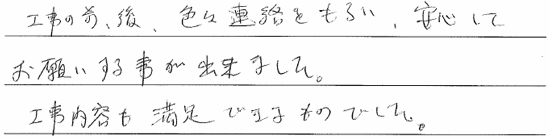 工事の前、後、色々連絡をもらい、安心して
お願いする事が出来ました。
工事内容も満足できるものでした。